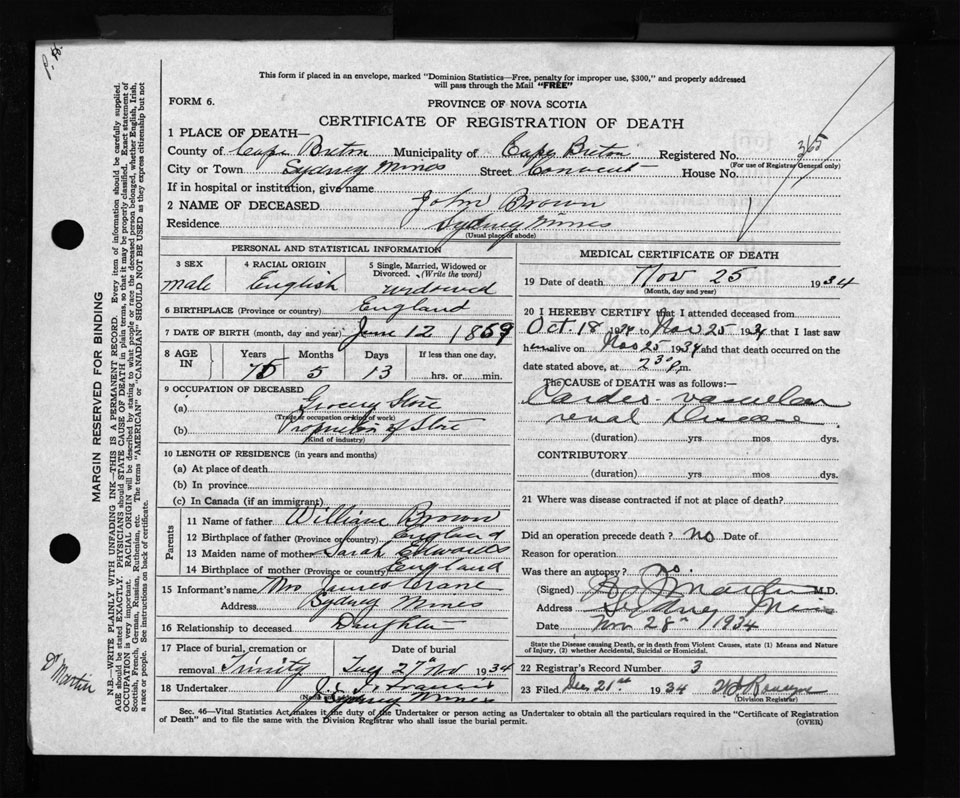 P. H.
This form if placed in an envelope, marked "Dominion Statistics—Free, penalty for improper use, $300," and properly addressed
will pass through the Mail "FREE"
FORM 6.
PROVINCE OF NOVA SCOTIA
CERTIFICATE OF REGISTRATION OF DEATH
1 PLACE OF DEATH—
County of Cape Breton Municipality of Cape Breton Registered No. 365
(For use of Registrar General only)
City or Town Sydney Mines Street Convent House No.
If in hospital or institution, give name
2 NAME OF DECEASED John Brown
Residence Sydney Mines
(Usual place of abode)
PERSONAL AND STATISTICAL INFORMATION
3 SEX 4 RACIAL ORIGIN 5 Single, Married, Widowed or Divorced. (Write the word)
male English widowed
6 BIRTHPLACE (Province or country) England
7 DATE OF BIRTH (month, day and year) June 12, 1859
8 AGE IN Years Months Days If less than one day,
75 5 13 hrs. or min.
9 OCCUPATION OF DECEASED
(a) Grocery Store
(Trade or occupation or kind of work)
(b) Proprietor of Store
(Kind of industry)
10 LENGTH OF RESIDENCE (in years and months)
(a) At place of death
(b) In province
(c) In Canada (if an immigrant)
Parents
11 Name of father William Brown
12 Birthplace of father (Province or country) England
13 Maiden name of mother Sarah Edwards
14 Birthplace of mother (Province or country) England
15 Informant's name Mrs James Crane
Address Sydney Mines
16 Relationship to deceased Daughter
17 Place of burial, cremation or removal Trinity
Date of burial Tues 27th Nov 1934
18 Undertaker
Sydney Mines
MEDICAL CERTIFICATE OF DEATH
19 Date of death Nov 25 1934
(Month, day and year)
20 I HEREBY CERTIFY that I attended deceased from
Oct 18 1934 to Nov 25 1934 that I last saw
him alive on Nov 25 1934 and that death occurred on the
date stated above, at 2 30 P.m.
The CAUSE OF DEATH was as follows:—
Cardio-vascular
renal Disease
(duration) yrs mos dys.
CONTRIBUTORY
(duration) yrs. mos. dys.
21 Where was disease contracted if not at place of death?
Did an operation precede death? no Date of
Reason for operation
Was there an autopsy? no
(Signed) Martin M.D.
Address Sydney Mines
Date Nov 28th 1934
State the Disease causing Death, or in death from Violent Causes, state (1) Means and Nature
of Injury, (2) whether Accidental, Suicidal or Homicidal.
22 Registrar's Record Number 3
23 Filed Dec 21st 1934
(Division Registrar)
Sec. 46—Vital Statistics Act makes it the duty of the Undertaker or person acting as Undertaker to obtain all the particulars required in the "Certificate of Registration
of Death" and to file the same with the Division Registrar who shall issue the burial permit.
(OVER)
MARGIN RESERVED FOR BINDING
N.B.—WRITE PLAINLY WITH UNFADING INK—THIS IS A PERMANENT RECORD. Every item of information should be carefully supplied.
AGE should be stated EXACTLY. PHYSICIANS should STATE CAUSE OF DEATH in plain terms, so that it may be properly classified. Exact statement of
OCCUPATION is very important. RACIAL ORIGIN will be described by stating to what people or race the deceased person belonged, whether English, Irish,
Scottish, French, German, Russian, Ruthenian, etc. The terms "AMERICAN" or "CANADIAN" SHOULD NOT BE USED as they express citizenship but not
a race or people. See instructions on back of certificate.
Dr Martin